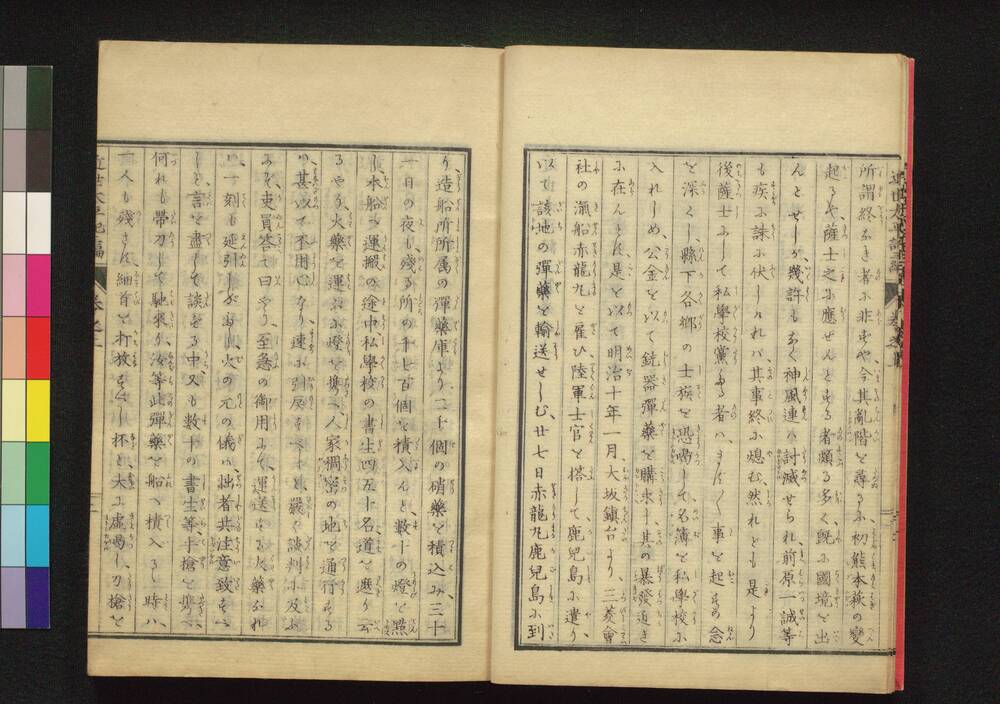 所謂終なき者に非ずや今其亂階を尋るに初熊本萩の變
起るや薩士之に應ぜんとする者頗る多く既に國境を出
んとせしが幾許もなく神風連は討滅せられ前原一誠等
も疾に誅に伏しければ其事終に熄む然れども是より
後薩士にして私學校黨たる者はます〱事を起すの念
を深くし縣下各郷の士族を恐喝して名簿を私學校に
入れしめ公金を以て銃器彈藥を購求す其の暴發近き
に在んとす是を以て明治十年一月大坂鎭台より三菱會
社の滊船赤龍丸を雇ひ陸軍士官を搭して鹿兒島に遣り
以て該地の彈藥を輸送せしむ廿七日赤龍丸鹿兒島に到
り造船所所属の彈藥庫より二十個の硝藥を積込み三十
一日の夜も残る所の千七百個を積入んと數十の燈を照
し本船へ運搬の途中私學校の書生四五十名道を遮り云
るやう火藥を運ぶに燈を携へ人家稠密の地を通行する
は甚以て不用心なり速に引戻すべしと嚴く談判に及ぶ
にぞ吏員答て曰やう至急の御用にて運送する火藥なれ
ば一刻も延引しがたし火の元の儀は拙者共注意致すべ
しと言を盡して談ずる中又も數十の書生等手槍を携へ
何れも帶刀して馳來り汝等此彈藥を船へ積入るゝ時は
一人も残さず細首を打放すべし抔と大に虚喝し刀槍を